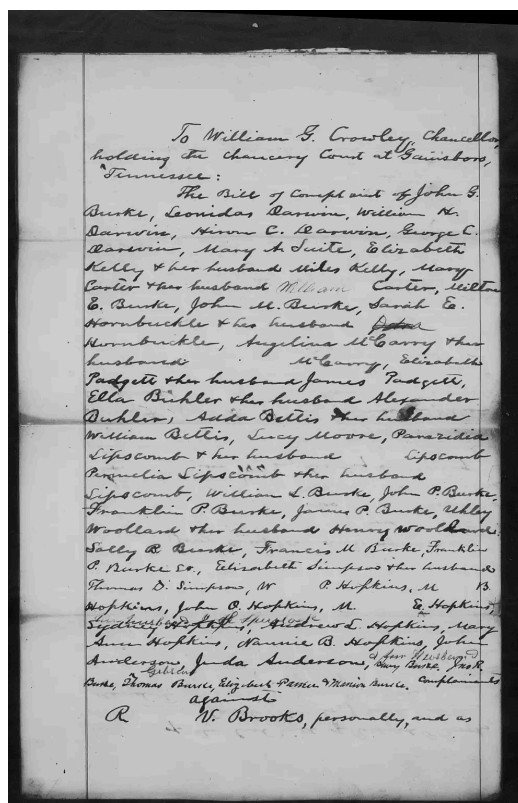 To William G. Crowley, Chancellor,
holding the Chancery Court at Gainsboro,
Tennessee:
The Bill of Complaint of John G.
Burke, Leonidas Darwin, William H.
Darwin, Hiron C. Darwin, George C.
Darwin, Mary A. Suite, Elizabeth
Kelly & her husband Miles Kelly, Mary
Carter & her husband William Carter, Milton
E. Burke, John M. Burke, Sarah E.
Hornbuckle & her husband
Hornbuckle, Angelina McCarry & her
husband McCarry, Elizabeth
Padgett & her husband James Padgett,
Ella Buhler & her husband Alexander
Buhler, Adda Bettis & her husband
William Bettis, Lucy Moore, Parazidia
Lipscomb & her husband Lipscomb
Permelia Lipscomb & her husband
Lipscomb, William L. Burke, John P. Burke,
Franklin P. Burke, James P. Burke, Uhley
Woollard & her husband Henry Woollard
Sally R Burke, Francis M Burke, Franklin
P. Burke Sr., Elizabeth Simpson & her husband
Thomas D. Simpson, W P. Hopkins, M B.
Hopkins, John O. Hopkins, M. E. Hopkins,
Sydney Hopkins, Andrew L. Hopkins, Mary
Ann Hopkins, Nannie B. Hopkins, John
Anderson, Juda Anderson, & her Husband
Henry Burke, Jno R.
Burke, Thomas Burke, Elizabeth Parker & Marion Burke. Complainants
against
R V. Brooks, personally, and as